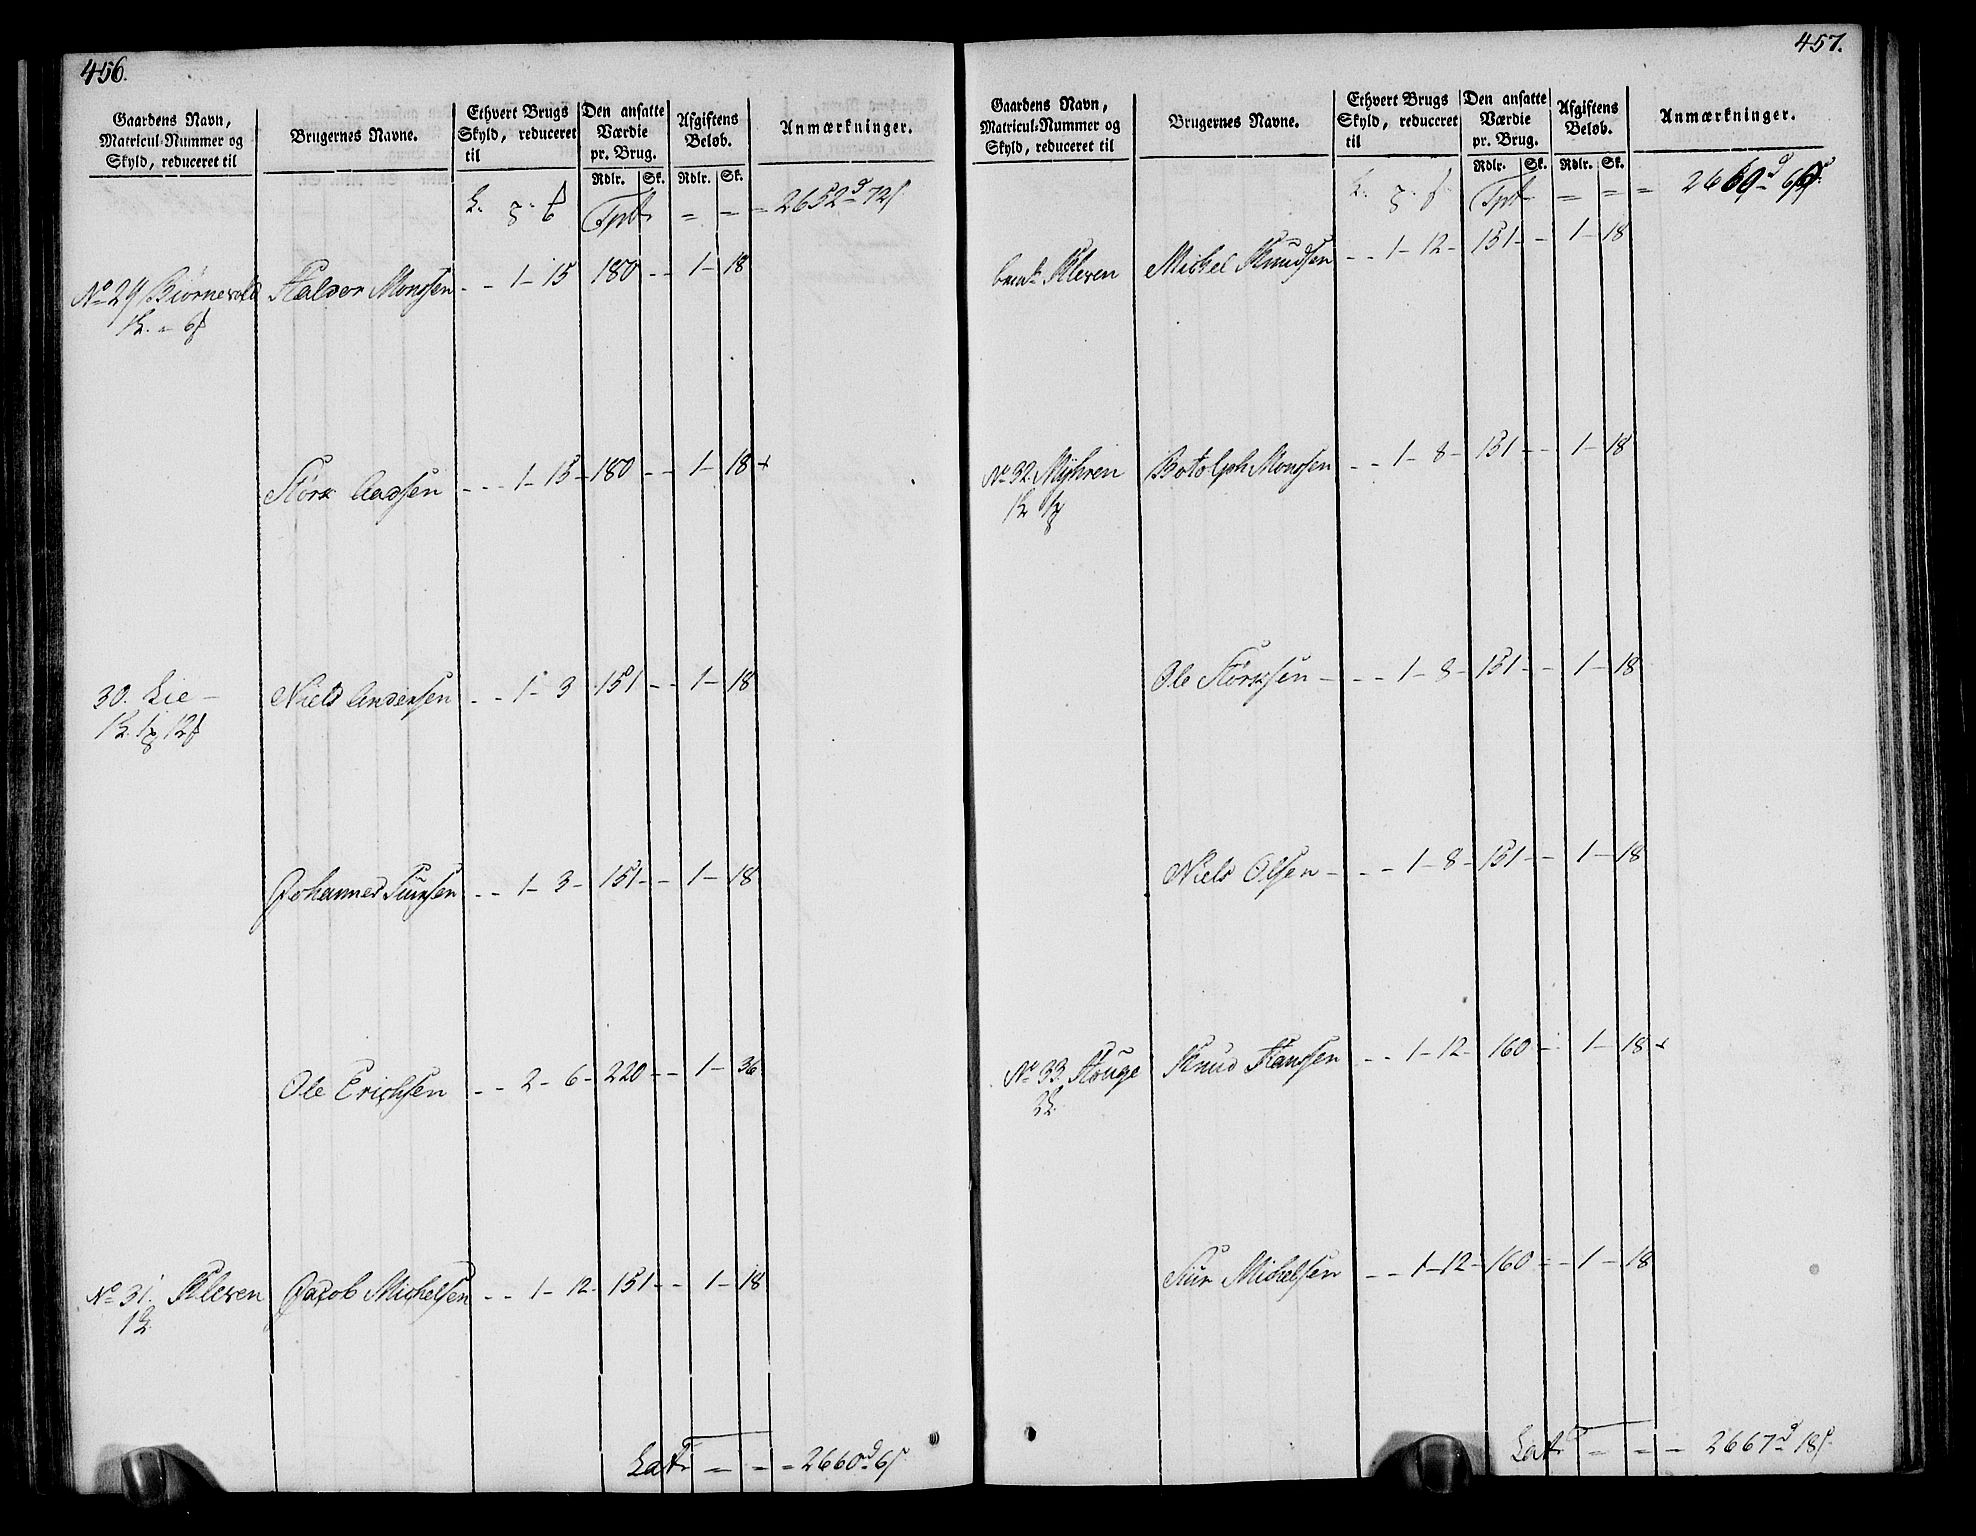 456.
Gaardens Navn, Matricul-Nummer og Skyld, reduceret til
Brugernes Navne.
Ethvert Brugs Skyld, reduceret til
Den ansatte Værdie pr. Brug.
Afgiftens Beløb.
Anmærkninger.
Rdlr. Sk. Rdlr. Sk.
Tpt = = = 2652 d 72 s
No 29 Biørnevold Halvor Monssen - - 1 - 15 180 - - 1 - 18
Størk Aadsen - - - 1 - 15 - 180 - - 1 - 18 +
30. Lie - Niels Andersen - - 1 - 3 151 - - 1 - 18
Johannes Siursen - - 1 - 3 - 151 - - 1 - 18
Ole Erichsen - - 2 - 6 - 220 - - 1 - 36
No 31. Kleven Jacob Michelsen - - 1 - 12 - 151 - - 1 - 18
Lat = = = 2660 d 6 s
457.
Gaardens Navn, Matricul-Nummer og Skyld, reduceret til
Brugernes Navne.
Ethvert Brugs Skyld, reduceret til
Den ansatte Værdie pr. Brug.
Afgiftens Beløb.
Anmærkninger.
Rdlr. Sk. Rdlr. Sk.
Tpt = = = 2660 d 6 s
Kleven Michel Knudsen - - 1 - 12 - 151 - - 1 - 18
No 32. Myhren Botolph Monssen - - 1 - 8 - 151 - - 1 - 18
Ole Størksen - - - 1 - 8 - 151 - - 1 - 18
Niels Olsen - - - 1 - 8 - 151 - - 1 - 18
No 33. Houge Knud Hanssen - - 1 - 12 - 160 - - 1 - 18 +
Siur Michelsen - - 1 - 12 - 160 = - 1 - 18
Lat = = = 2667 d 18 s